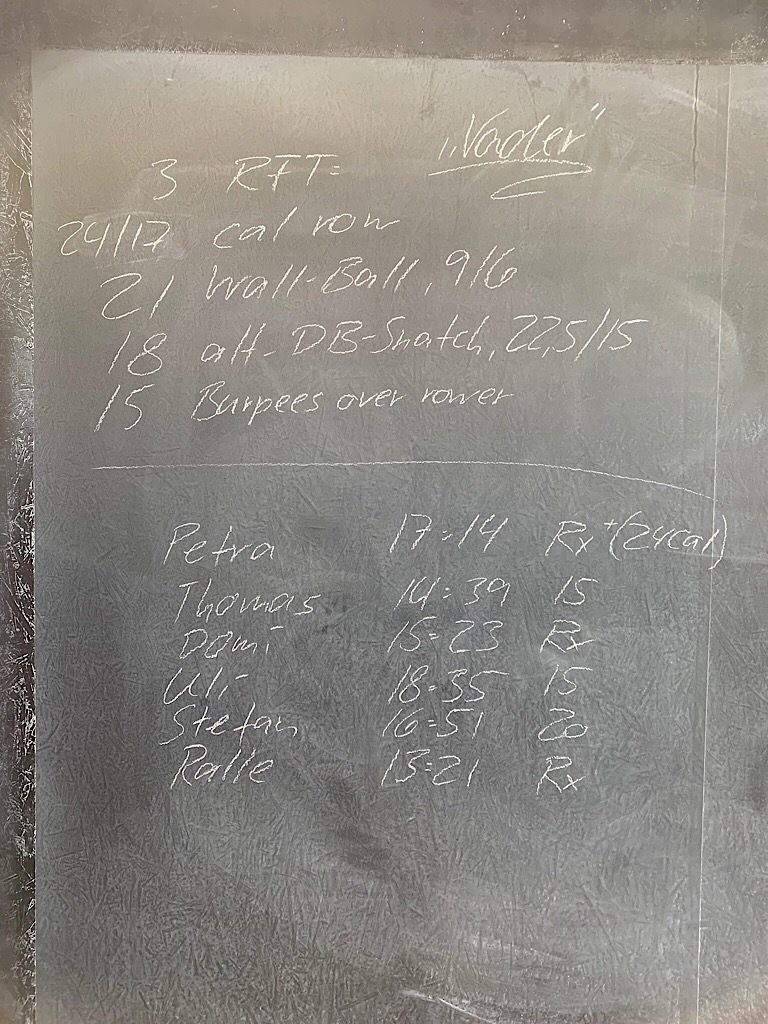 „Vader“
3 RFT:
24/17 cal row
21 Wall-Ball, 9/6
18 alt. DB-Snatch, 22,5/15
15 Burpees over rower
Petra 17:14 Rx+(24cal)
Thomas 14:39 15
Domi 15:23 Rx
Uli 18:35 15
Stefan 16:51 20
Ralle 13:21 Rx